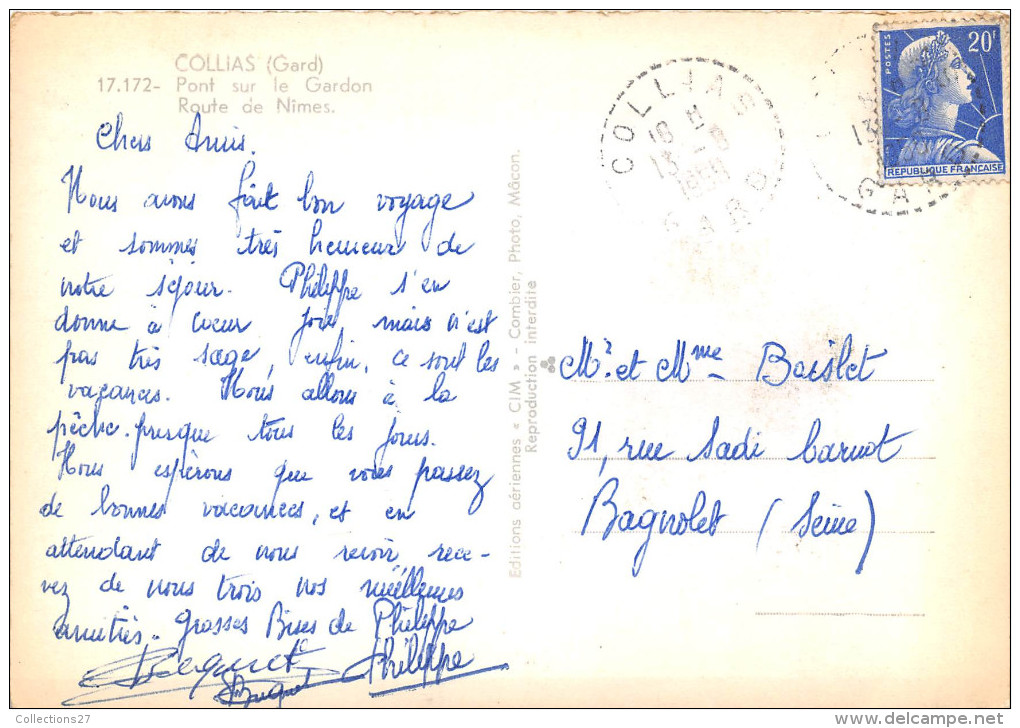 COLLIAS (Gard)
17.172- Pont sur le Gardon
Route de Nîmes.
Chers Amis.
Nous avons fait bon voyage
et sommes très heureux de
notre séjour. Philippe s'en
donne à coeur joie mais n'est
pas très sage, enfin, ce sont les
vacances. Nous allons à la
pêche presque tous les jours.
Nous espérons que vous passez
de bonnes vacances, et en
attendant de vous revoir, rece-
vez de nous trois nos meilleures
amitiés. Grosses Bises de Philippe
Philippe
Editions aériennes « CIM » - Combier, Photo, Mâcon.
Reproduction interdite
COLLIAS
GARD
POSTES
20F
REPUBLIQUE FRANÇAISE
Mr. et Mme Boislet
91, rue Sadi Carnot
Bagnolet (Seine)
Collections27
www.delcampe.net